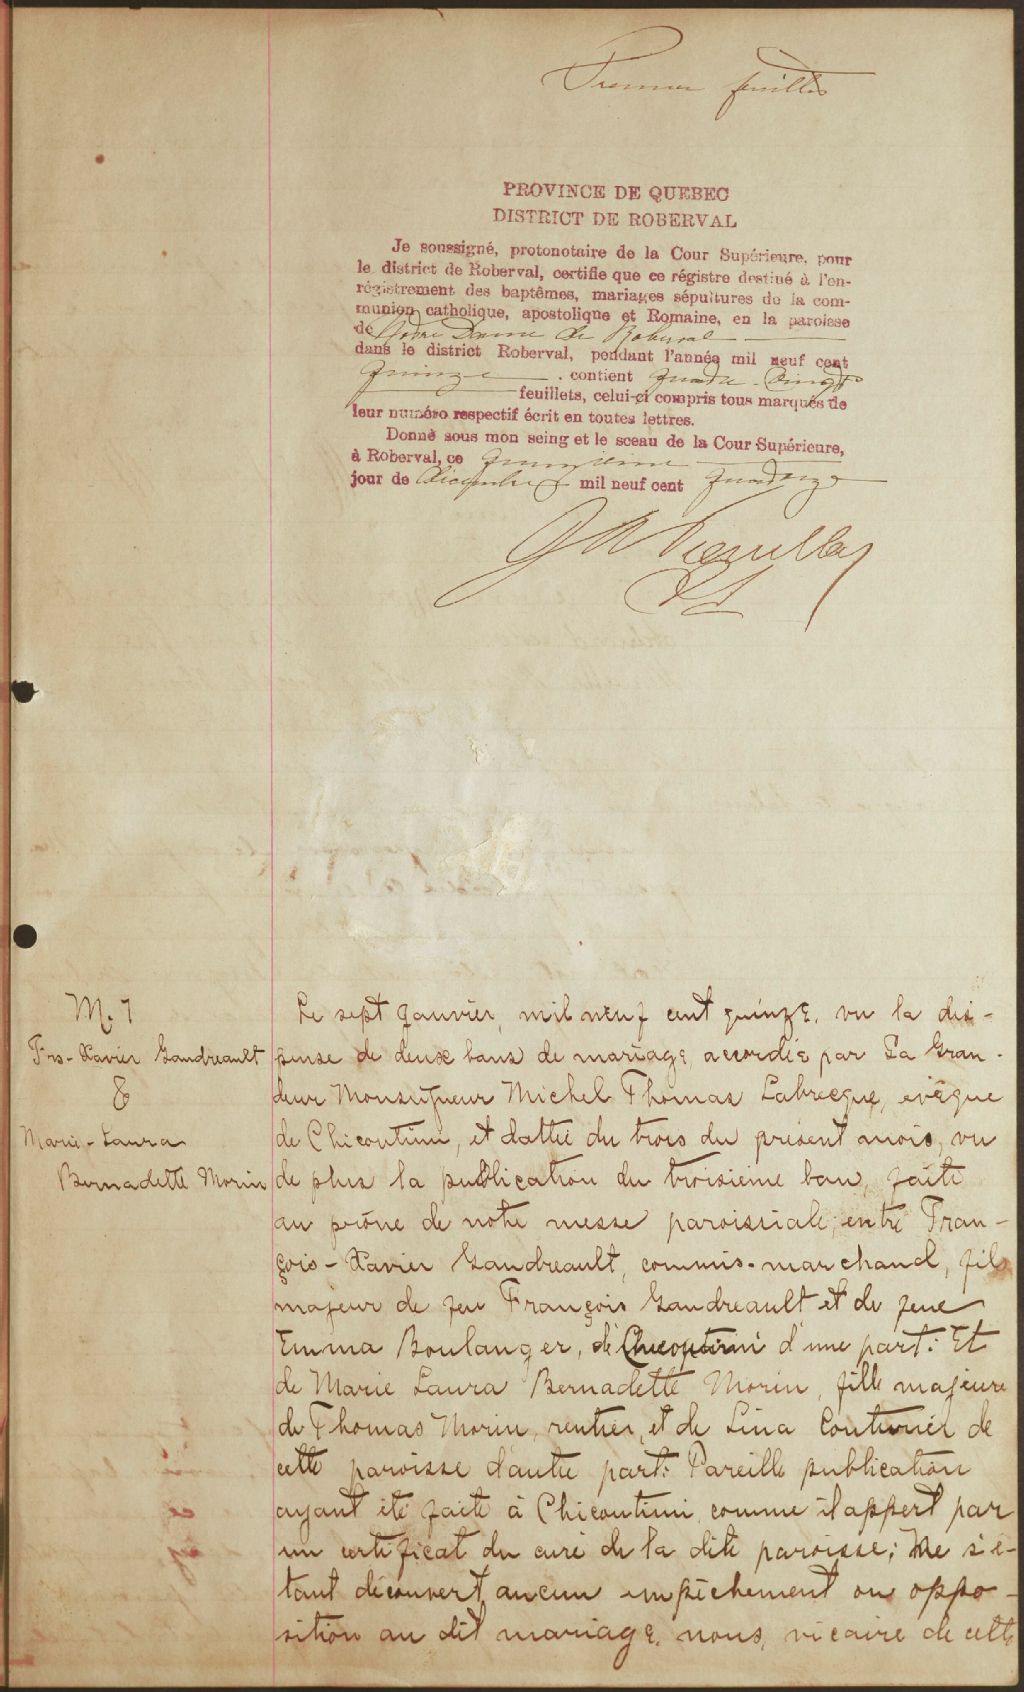 Premier feuillet
PROVINCE DE QUEBEC
DISTRICT DE ROBERVAL
Je soussigné, protonotaire de la Cour Supérieure, pour
le district de Roberval, certifie que ce régistre destiné à l'en-
régistrement des baptêmes, mariages sépultures de la com-
munion catholique, apostolique et Romaine, en la paroisse
de Notre Dame de Roberval
dans le district Roberval, pendant l'année mil neuf cent
quinze contient quatre-vingt
feuillets, celui-ci compris tous marqués de
leur numéro respectif écrit en toutes lettres.
Donné sous mon seing et le sceau de la Cour Supérieure,
à Roberval, ce quinzième
jour de décembre mil neuf cent quatorze
M. 1
Frs-Xavier Gaudreault
&
Marie-Laura
Bernadette Morin
Le sept Janvier, mil neuf cent quinze, vu la dis-
pense de deux bans de mariage, accordée par Sa Gran-
deur Monseigneur Michel Thomas Labrecque, evêque
de Chicoutimi, et dattée du trois du présent mois, vu
de plus la publication du troisième ban, faite
au prône de notre messe paroissiale, entre Fran-
çois-Xavier Gaudreault, commis-marchand, fils
majeur de feu François Gaudreault et de feue
Emma Boulanger, de Chicoutimi d'une part: Et
de Marie Laura Bernadette Morin, fille majeure
de Thomas Morin, rentier, et de Lina Couturier de
cette paroisse d'autre part: Pareille publication
ayant été faite à Chicoutimi, comme il appert par
un certificat du curé de la dite paroisse; Ne s'é-
tant découvert aucun empêchement ou oppo-
sition au dit mariage, nous, vicaire de cette